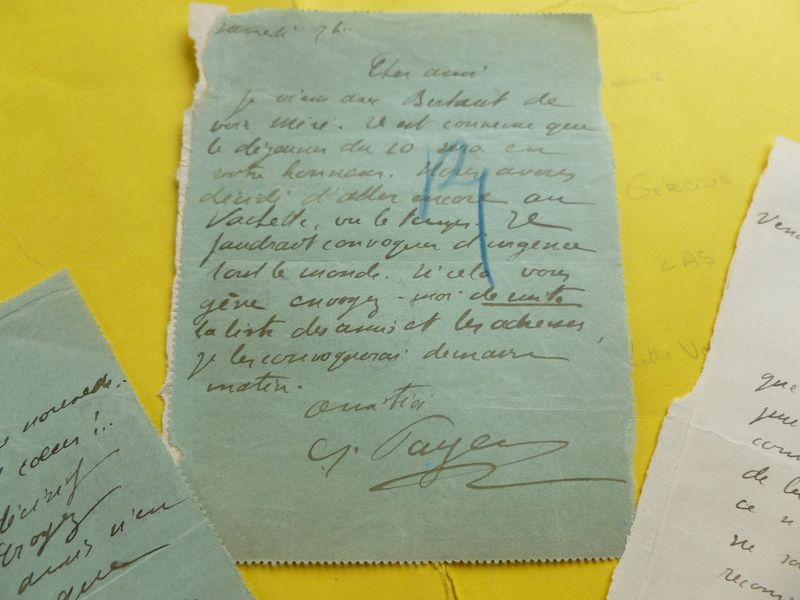 samedi 7h.
Cher ami
Je viens avec Bertaut de
voir Miré. Il est convenu que
le déjeuner du 20 sera en
votre honneur. Nous avons
décidé d'aller encore au
Vachette, vu le temps. Il
faudrait convoquer d'urgence
tout le monde. Si cela vous
gêne envoyez-moi de suite
la liste des amis et les adresses,
je les convoquerai demain
matin.
amitiés
Payen
cœur !..
décisif
envoyez
amis n'en
que
Vend
que
com
de le
ce n
ne so
recom
LAS